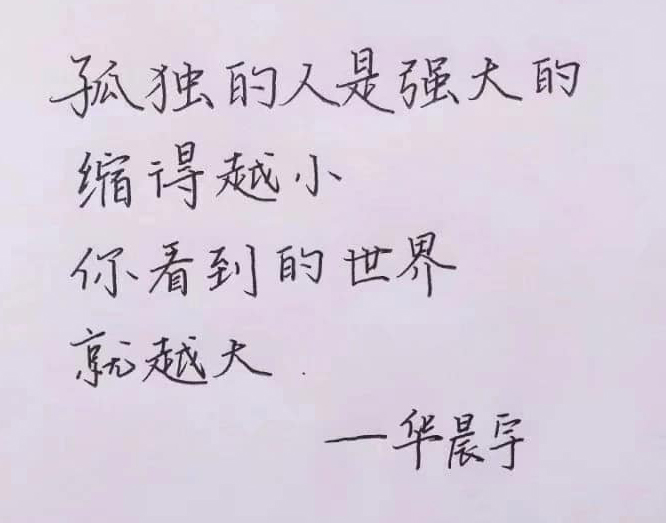 孤独的人是强大的
缩得越小
你看到的世界
就越大.
—华晨宇